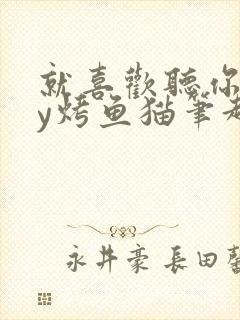 就喜歡聽你
y烤鱼猫筆趣
永井豪 長田馨